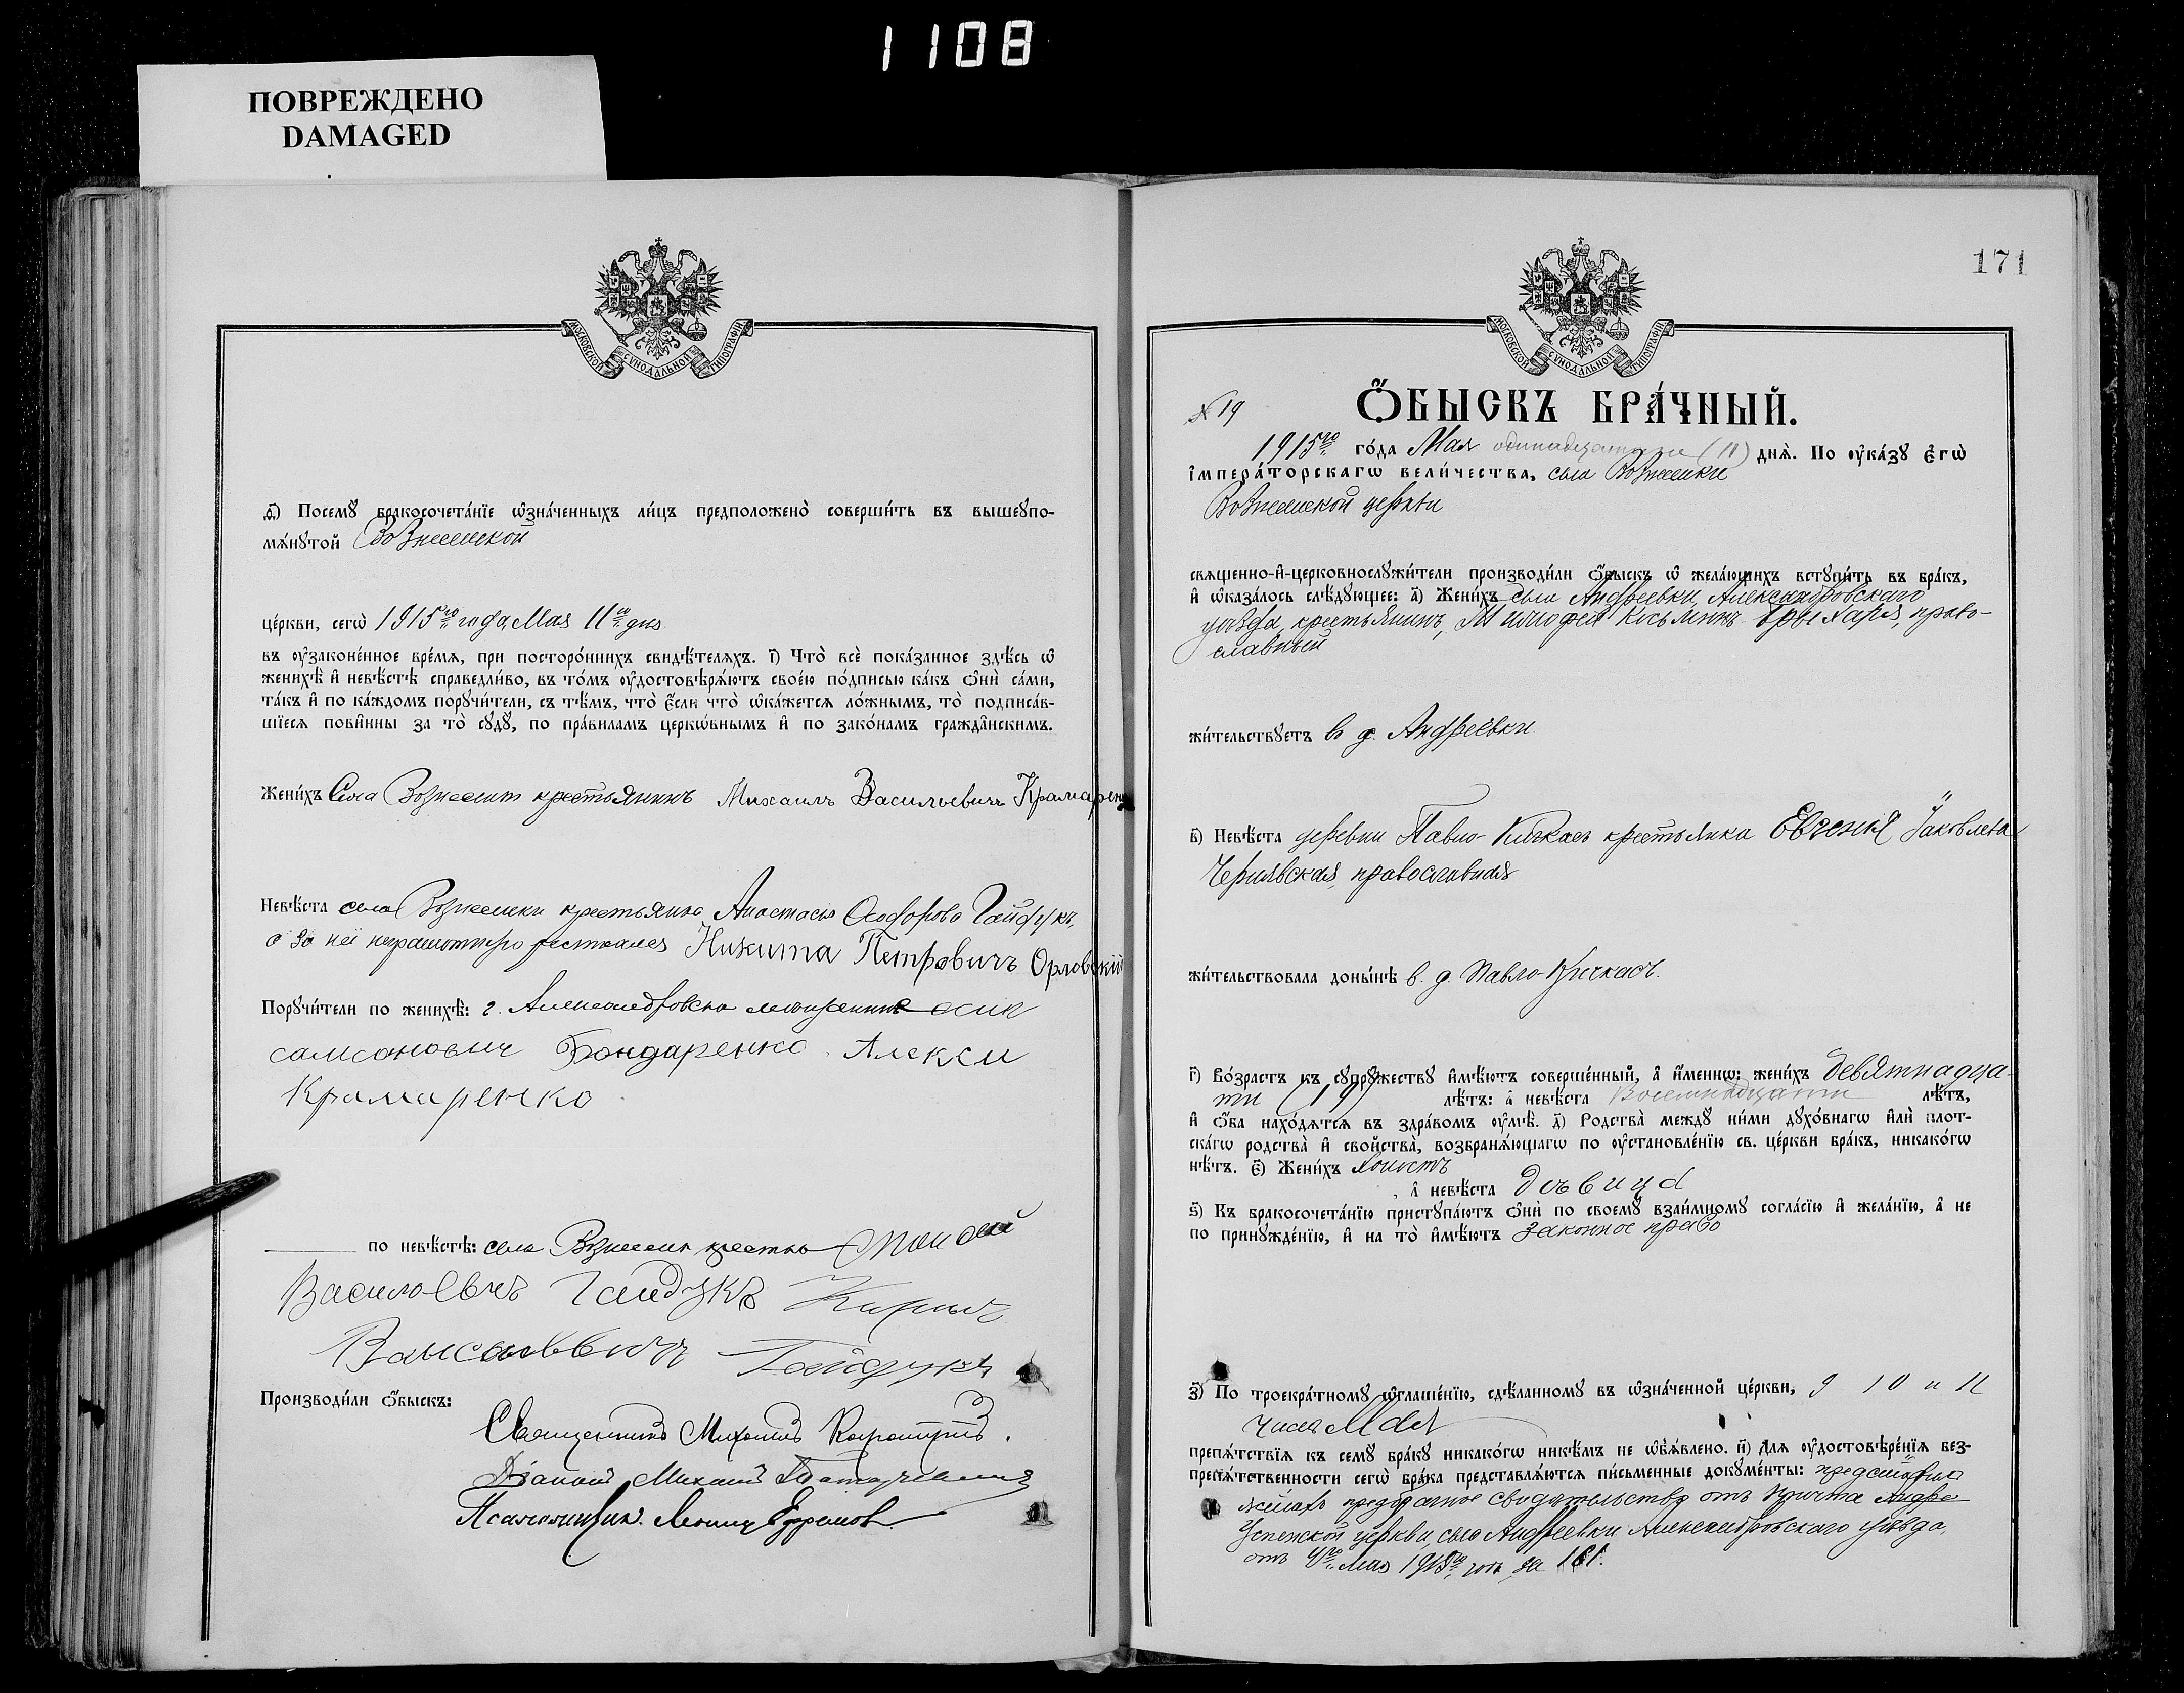 1108
ПОВРЕЖДЕНО
DAMAGED
МОСКОВСКОЙ СУНОДАЛЬНОЙ ТИПОГРАФІИ
ѳ҃) Посемꙋ бракосочета́нїе ѡ҆зна́ченныхъ ли́цъ предположено̀ соверши́ть въ вышеꙋпо-
мѧ́нꙋтой Вознесенской
це́ркви, сегѡ̀ 1915го года Мая 11го дня
въ ᲂу҆законе́нное вре́мѧ, при посторо́ннихъ свидѣ́телѧхъ. і҃) Что̀ всѐ пока́занное здѣ́сь ѡ҆
женихѣ̀ и҆ невѣ́стѣ справедли́во, въ то́мъ ᲂу҆достовѣрѧ́ютъ свое́ю по́дписью ка́къ ѻ҆нѝ са́ми,
та́къ и҆ по ка́ждомъ порꙋчи́тели, съ тѣ́мъ, что̀ є҆́сли что̀ ѡ҆ка́жетсѧ ло́жнымъ, то̀ подписа́в-
шїесѧ пови́нны за то̀ сꙋдꙋ̀, по пра́виламъ церкѡ́внымъ и҆ по зако́намъ гражда́нскимъ.
Жени́хъ Села Вознесенки крестьянинъ Михаилъ Васильевичъ Крамарен
Невѣ́ста села Вознесенки крестьянка Анастасья Ѳеодорова Гайдукъ,
а за неё неграмотную росписался Никита Петровичъ Орловскій
Порꙋчи́тели по женихѣ̀: г. Александровска мещанинъ осип
самсонович Бондаренко. Алекси
Крамаренко
по невѣ́стѣ: села Вознесенки крестья
Василоевчъ Гаидукъ Кирил
Гайдукъ
Производи́ли ѻ҆́быскъ:
Священникъ Михаилъ
Діаконъ Михаилъ
Псаломщик Леонид Ефремов
171
МОСКОВСКОЙ СУНОДАЛЬНОЙ ТИПОГРАФІИ
№ 19
Ѻ҆́БЫСКЪ БРА́ЧНЫЙ.
1915го го́да Мая одинадцатаго (11) днѧ̀. По ᲂу҆ка́зꙋ є҆гѡ̀
і҆мпера́торскагѡ вели́чества, села Вознесенки
Вознесенской церкви
свѧщенно-и҆-церковнослꙋжи́тели производи́ли ѻ҆́быскъ ѡ҆ жела́ющихъ встꙋпи́ть въ бра́къ,
и҆ ѡ҆каза́лось слѣ́дꙋющее: а҃) Жени́хъ села Андреевки, Александровскаго
уѣзда, крестьянинъ, Тимофей Косьминъ Брыхаря, право-
славный
жи́тельствꙋетъ в с. Андреевки
в҃) Невѣ́ста деревни Павло-Кичкасъ крестьянка Евгенія Іаковлева
Чернявская, православная
жи́тельствовала доны́нѣ в. д. Павло-Кичкасъ.
г҃) Во́зрастъ къ сꙋпрꙋ́жествꙋ и҆мѣ́ютъ соверше́нный, а҆ и҆́меннѡ: жени́хъ девятнадца-
ти (19) лѣ́тъ: а҆ невѣ́ста Восемнадцати лѣ́тъ,
и҆ ѻ҆́ба нахо́дѧтсѧ въ здра́вомъ ᲂу҆мѣ̀. д҃) Родства̀ междꙋ̀ ни́ми дꙋхо́внагѡ и҆лѝ плот-
ска́гѡ родства̀ и҆ свойства̀, возбранѧ́ющагѡ по ᲂу҆становле́нїю св. це́ркви бра́къ, никако́гѡ
нѣ́тъ. є҃) Жени́хъ холостъ
, а҆ невѣ́ста дѣвица
ѕ҃) Къ бракосочета́нїю пристꙋпа́ютъ ѻ҆нѝ по своемꙋ̀ взаи́мномꙋ согла́сїю и҆ жела́нїю, а҆ не
по принꙋжде́нїю, и҆ на то̀ и҆мѣ́ютъ законное право
з҃) По троекра́тномꙋ ѡ҆глаше́нїю, сдѣ́ланномꙋ въ ѡ҆зна́ченной це́ркви, 9 10 и 11
числа Мая
препѧ́тствїѧ къ семꙋ̀ бра́кꙋ никако́гѡ никѣ́мъ не ѡ҆б̾ѧ́влено. и҃) Длѧ ᲂу҆достовѣре́нїѧ без-
препѧ́тственности сегѡ̀ бра́ка представлѧ́ютсѧ пи́сьменные докꙋме́нты: представлено
женихъ предбрачное свидѣтельство отъ причта Андре
Успенской церкви, села Андреевки Александровскаго уѣзда,
отъ Мая 1915го года за 181.